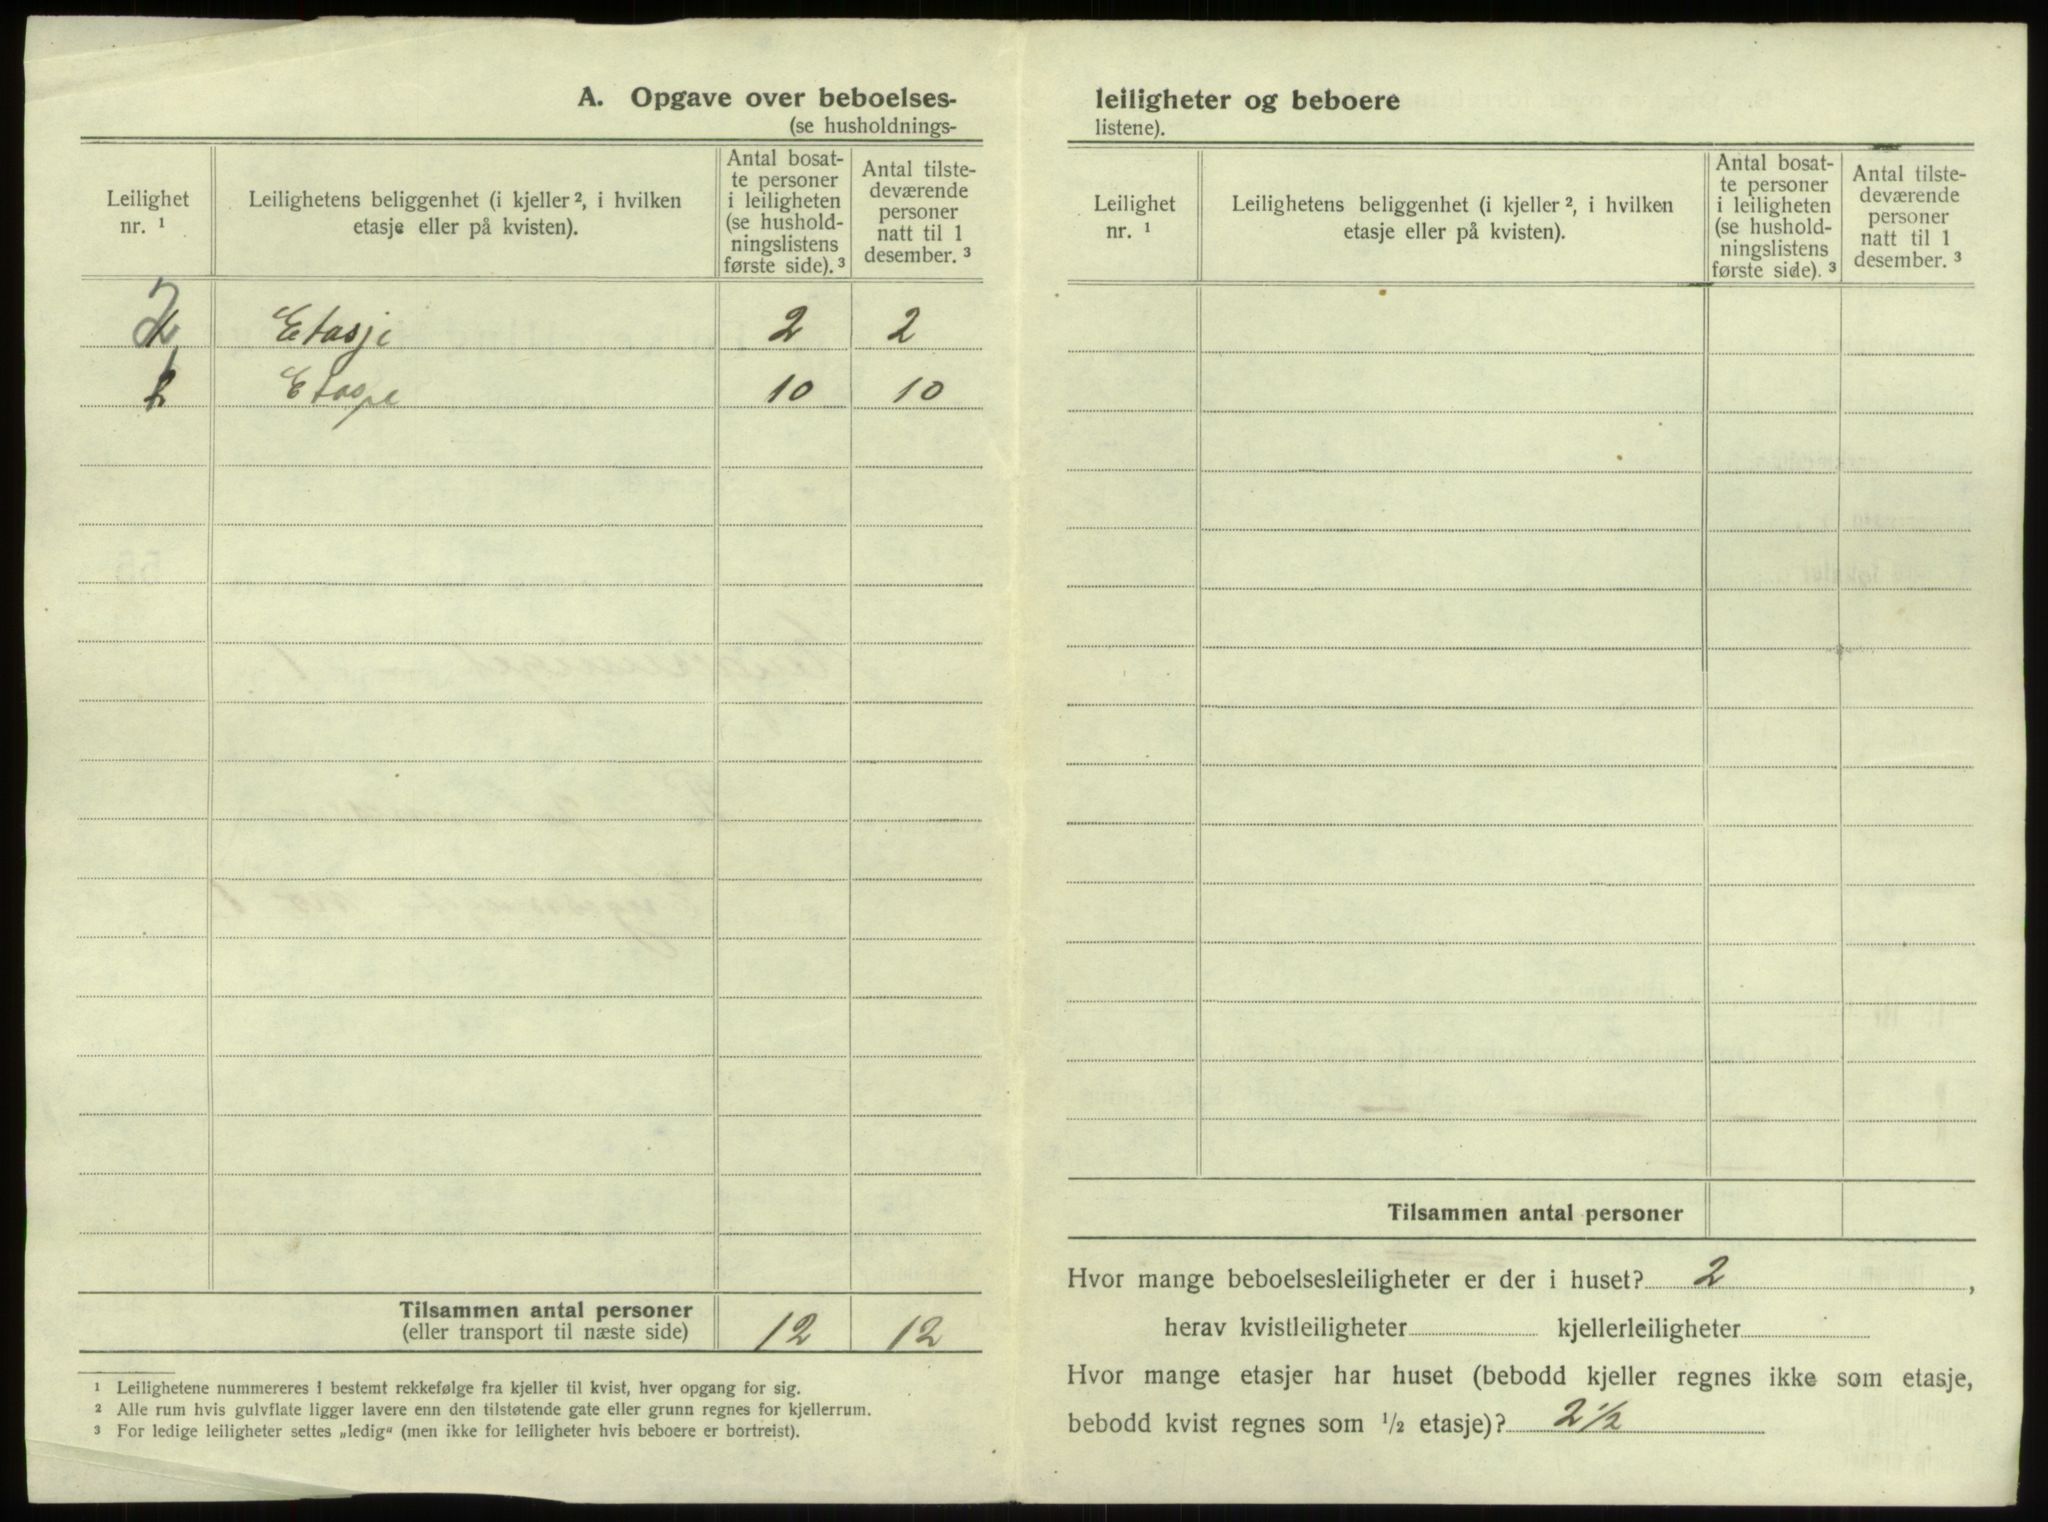 A. Opgave over beboelses-
(se husholdnings-
Leilighet nr. ¹
Leilighetens beliggenhet (i kjeller ², i hvilken etasje eller på kvisten).
Antal bosat-
te personer
i leiligheten
(se hushold-
ningslistens
første side). ³
Antal tilste-
deværende
personer
natt til 1
desember. ³
2 Etasje 2 2
1 Etasje 10 10
Tilsammen antal personer
(eller transport til næste side) 12 12
¹ Leilighetene nummereres i bestemt rekkefølge fra kjeller til kvist, hver opgang for sig.
² Alle rum hvis gulvflate ligger lavere enn den tilstøtende gate eller grunn regnes for kjellerrum.
³ For ledige leiligheter settes „ledig“ (men ikke for leiligheter hvis beboere er bortreist).
leiligheter og beboere
listene).
Leilighet nr. ¹
Leilighetens beliggenhet (i kjeller ², i hvilken etasje eller på kvisten).
Antal bosat-
te personer
i leiligheten
(se hushold-
ningslistens
første side). ³
Antal tilste-
deværende
personer
natt til 1
desember. ³
Tilsammen antal personer
Hvor mange beboelsesleiligheter er der i huset? 2 ,
herav kvistleiligheter kjellerleiligheter
Hvor mange etasjer har huset (bebodd kjeller regnes ikke som etasje,
bebodd kvist regnes som ½ etasje)? 2 ½